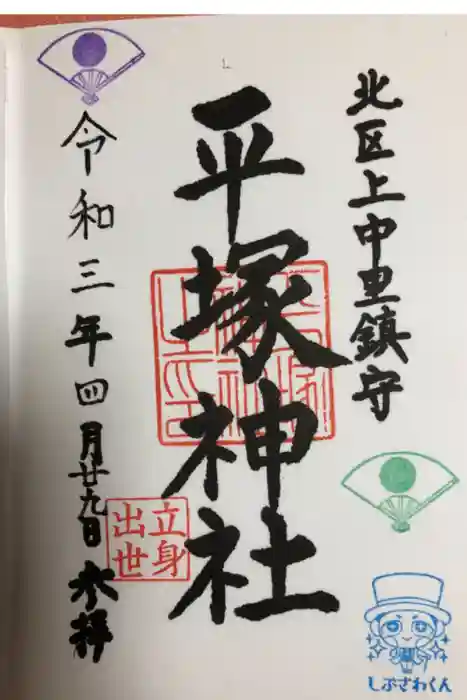 北区上中里鎮守
平塚神社
令和三年四月廿九日 参拝
立身
出世
しぶざわくん